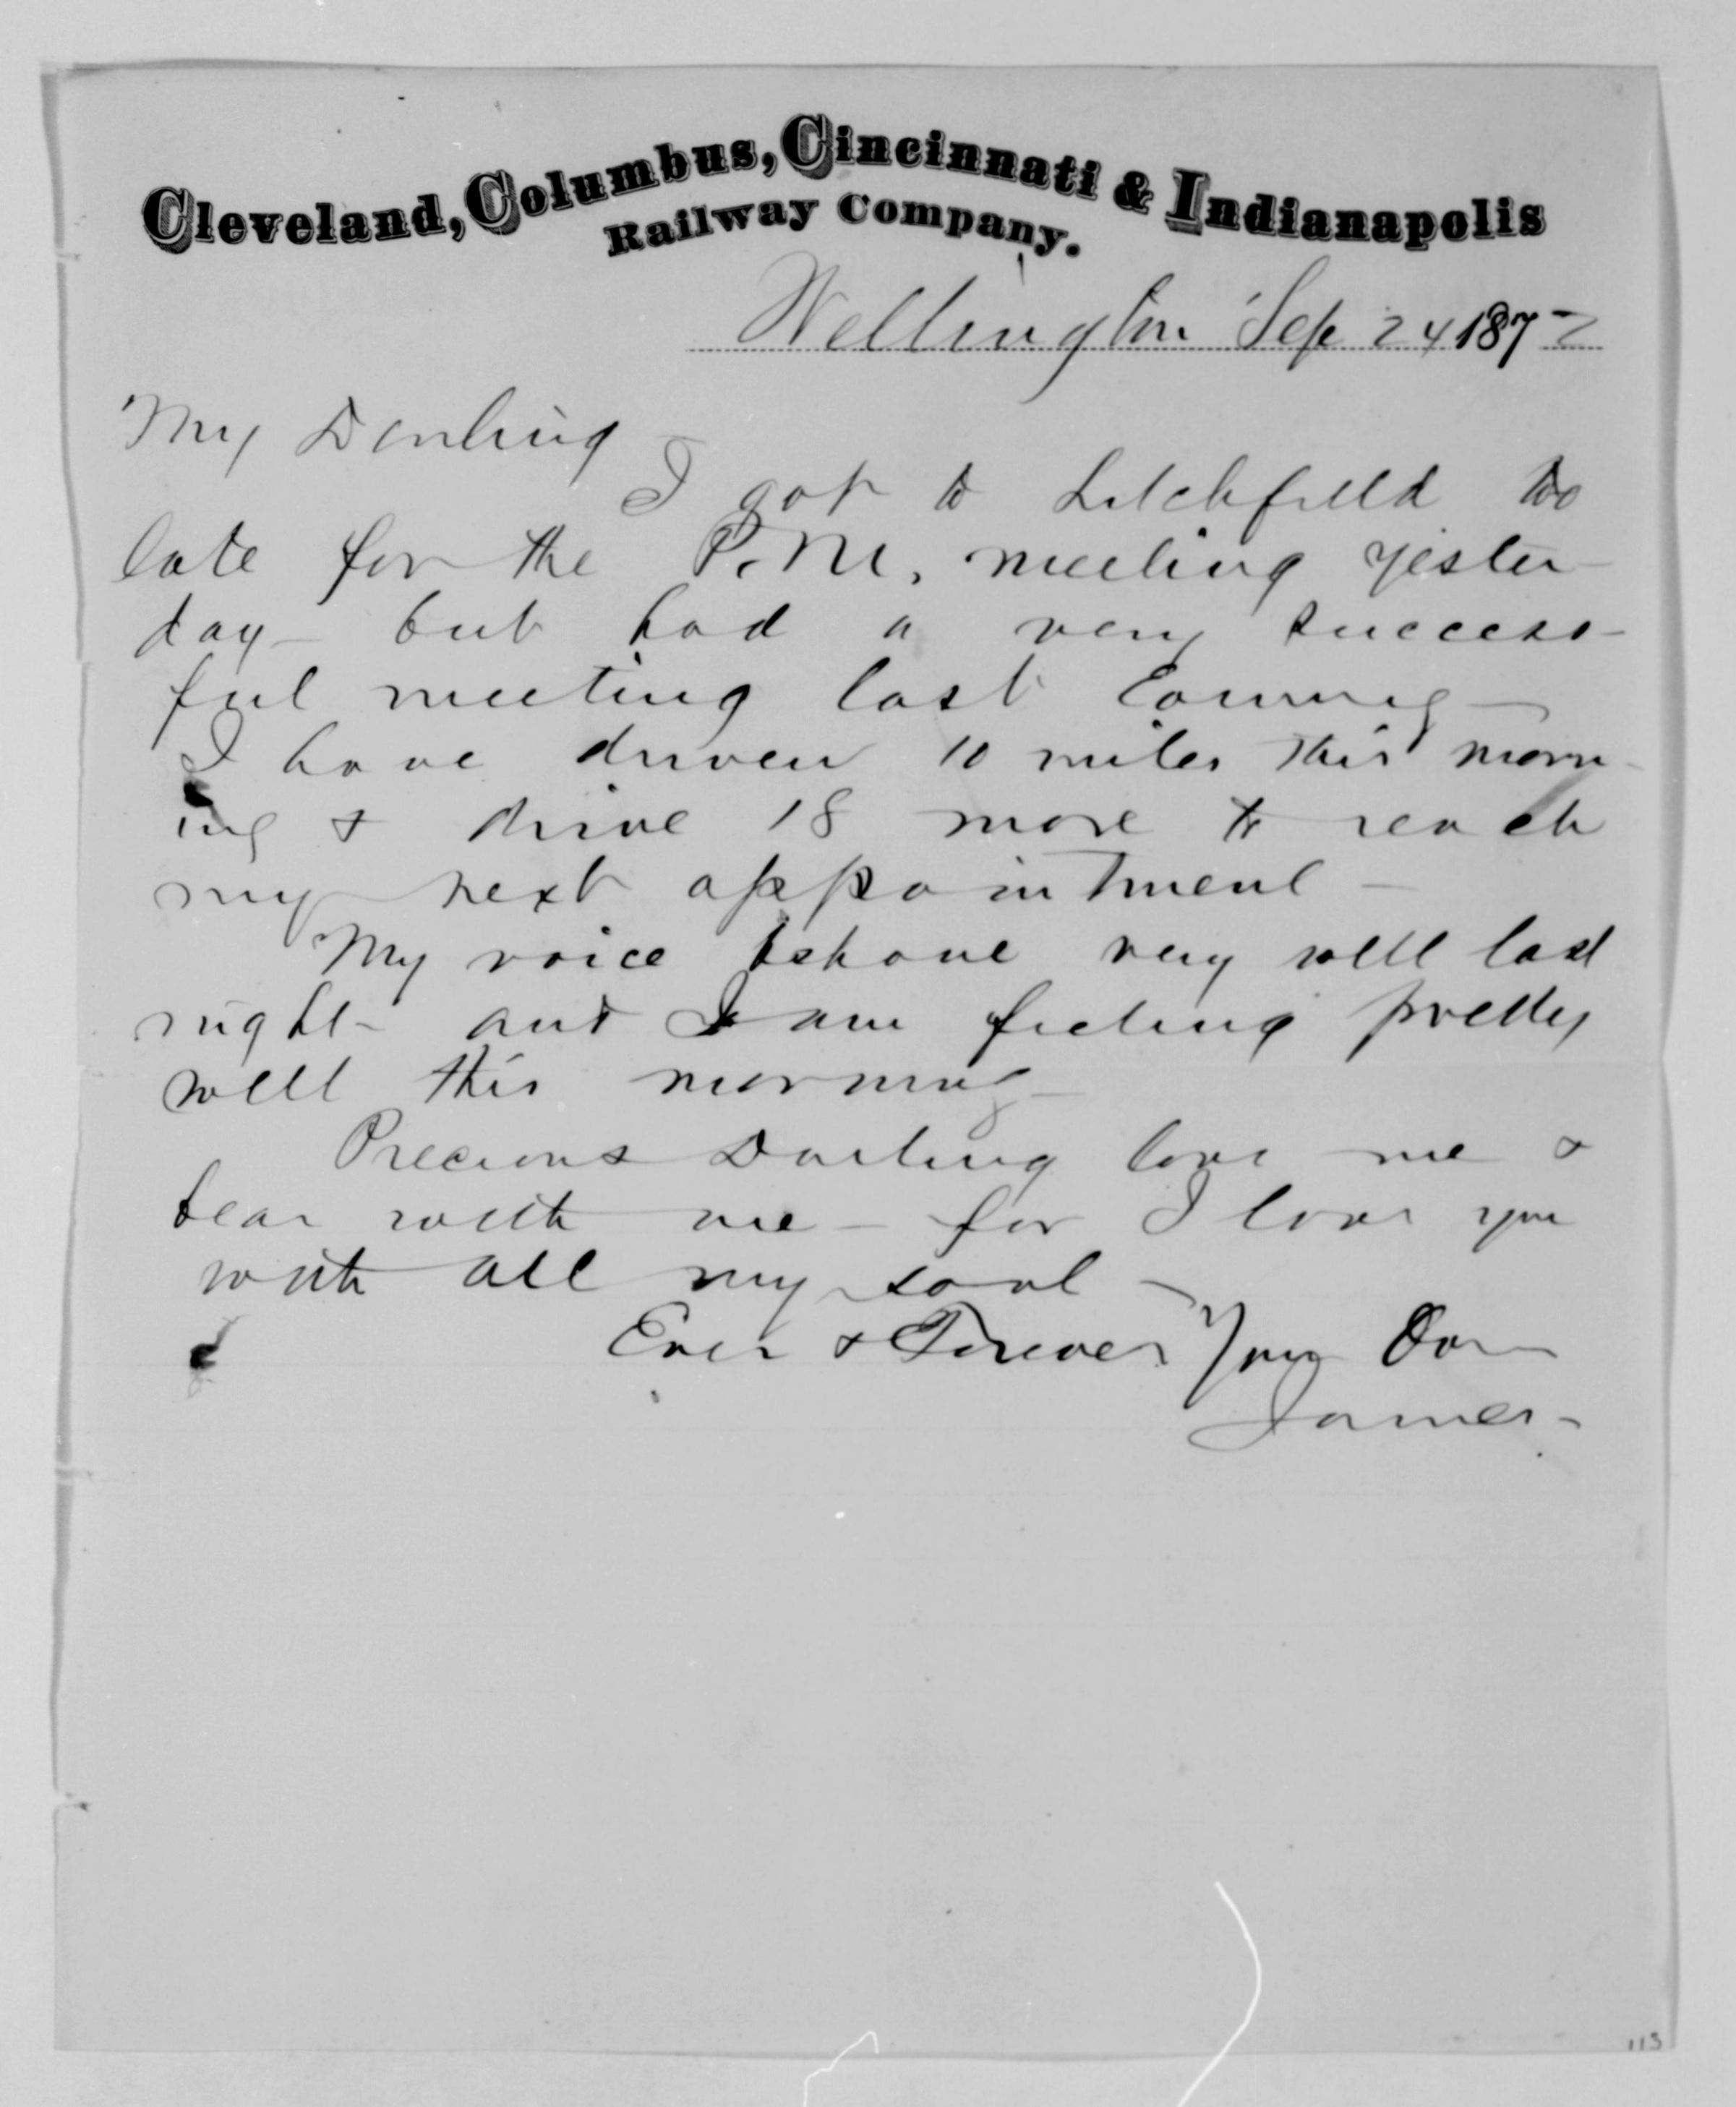 Cleveland, Columbus, Cincinnati & Indianapolis
Railway Company.
Wellington Sep 24 1872
My Darling
I got to Litchfield too
late for the P.M. meeting yester-
day - but had a very success-
ful meeting last Evening -
I have driven 10 miles this morn-
ing & drive 18 more to reach
my next appointment -
My voice behave very well last
night - and I am feeling pretty
well this morning -
Precious Darling love me &
bear with me - for I love you
with all my soul -
Ever & Forever Your Own
James -
113